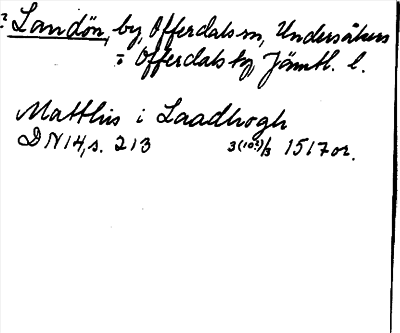 ? Landön, by, Offerdals sn, Undersåkers
÷ Offerdals tg, Jämtl. l.
Matthis i Laadhogh
DN 14, s. 213 3(10?)/3 1517 or.